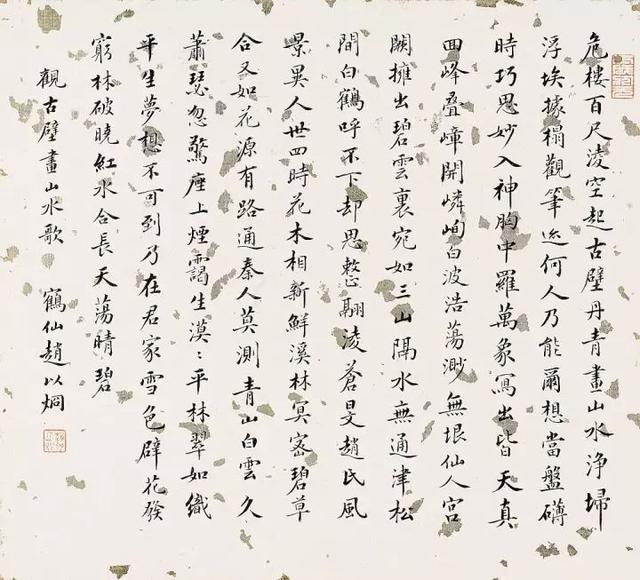 危樓百尺淩空起古壁丹青畫山水浄掃
浮埃據榻觀筆迹何人乃能爾想當盤礴
時巧思妙入神胸中羅萬象寫出皆天真
回峰叠嶂開嶙峋白波浩蕩渺無垠仙人宮
闕擁出碧雲裏宛如三山隔水無通津松
間白鶴呼不下却思整翮淩蒼旻趙氏風
景異人世四時花木相新鮮溪林冥密碧草
合又如花源有路通秦人莫測青山白雲久
蕭瑟忽驚座上煙靄生漠〻平林翠如織
平生夢想不可到乃在君家雪色壁花發
窮林破曉紅水合長天蕩晴碧
觀古壁畫山水歌 鶴仙趙以烱